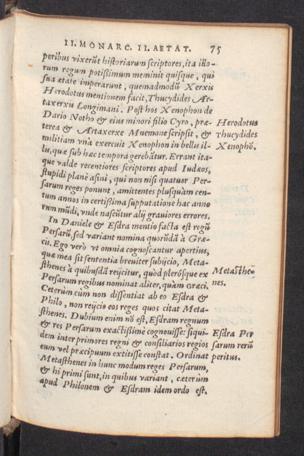 II. MONARC. II. AETAT. 75
peribus vixerūt historiarum scriptores, ita illo-
rum regum potissimum meminit quisque, qui
sua etate imperarunt, quemadmodū Xerxis
Herodotus mentionem facit, Thucydides Ar-
taxerxis Longimani. Post hos Xenophon de
Dario Notho & eius minori filio Cyro, præ- Herodotus
terea & Artaxerxe Mnemone scripsit, & Thucydides
militiam vnà exercuit Xenophon in bellis il- Xenophō.
lis, quæ sub hac tempora gerebātur. Errant ita-
que valde recentiores scriptores apud Iudæos,
stupidi planè asini, qui non nisi quatuor Per-
sarum reges ponunt, amittentes plusquàm cen-
tum annos in certissima supputatione hac anno
rum mūdi, vnde nascūtur alij grauiores errores.
In Daniele & Esdra mentio facta est regū
Persarū, sed variant nomina quorūdā à Græ-
cis. Ego verò vt omnia cognoscantur apertius,
quæ mea sit sententia breuiter subijcio, Meta-
sthenes à quibusdā reijcitur, quòd plerósque ex Metasthe
Persarum regibus nominat aliter, quàm Græci. nes.
Ceterùm cùm non dissentiat ab eo Esdra &
Philo, non reijcio eos reges quos citat Meta-
sthenes. Dubium enim nō est, Esdram regnum
& res Persarum exactissimè cognouisse: siqui- Esdra Per
dem inter primores regni & consiliarios regios sarum rerū
eum vel præcipuum extitisse constat. Ordinat peritus.
Metasthenes in hunc modum reges Persarum,
& hi primi sunt, in quibus variant, cæterùm
apud Philonem & Esdram idem ordo est.